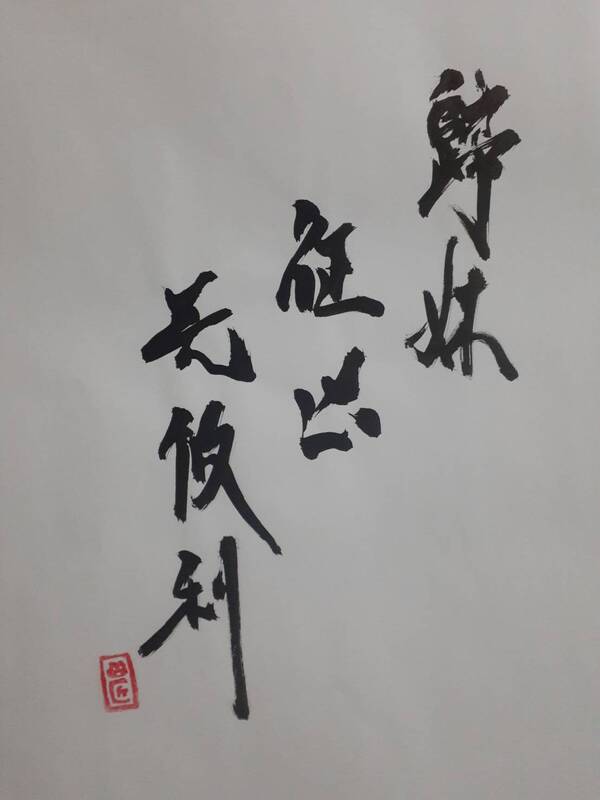 歸妹
征凶
无攸利